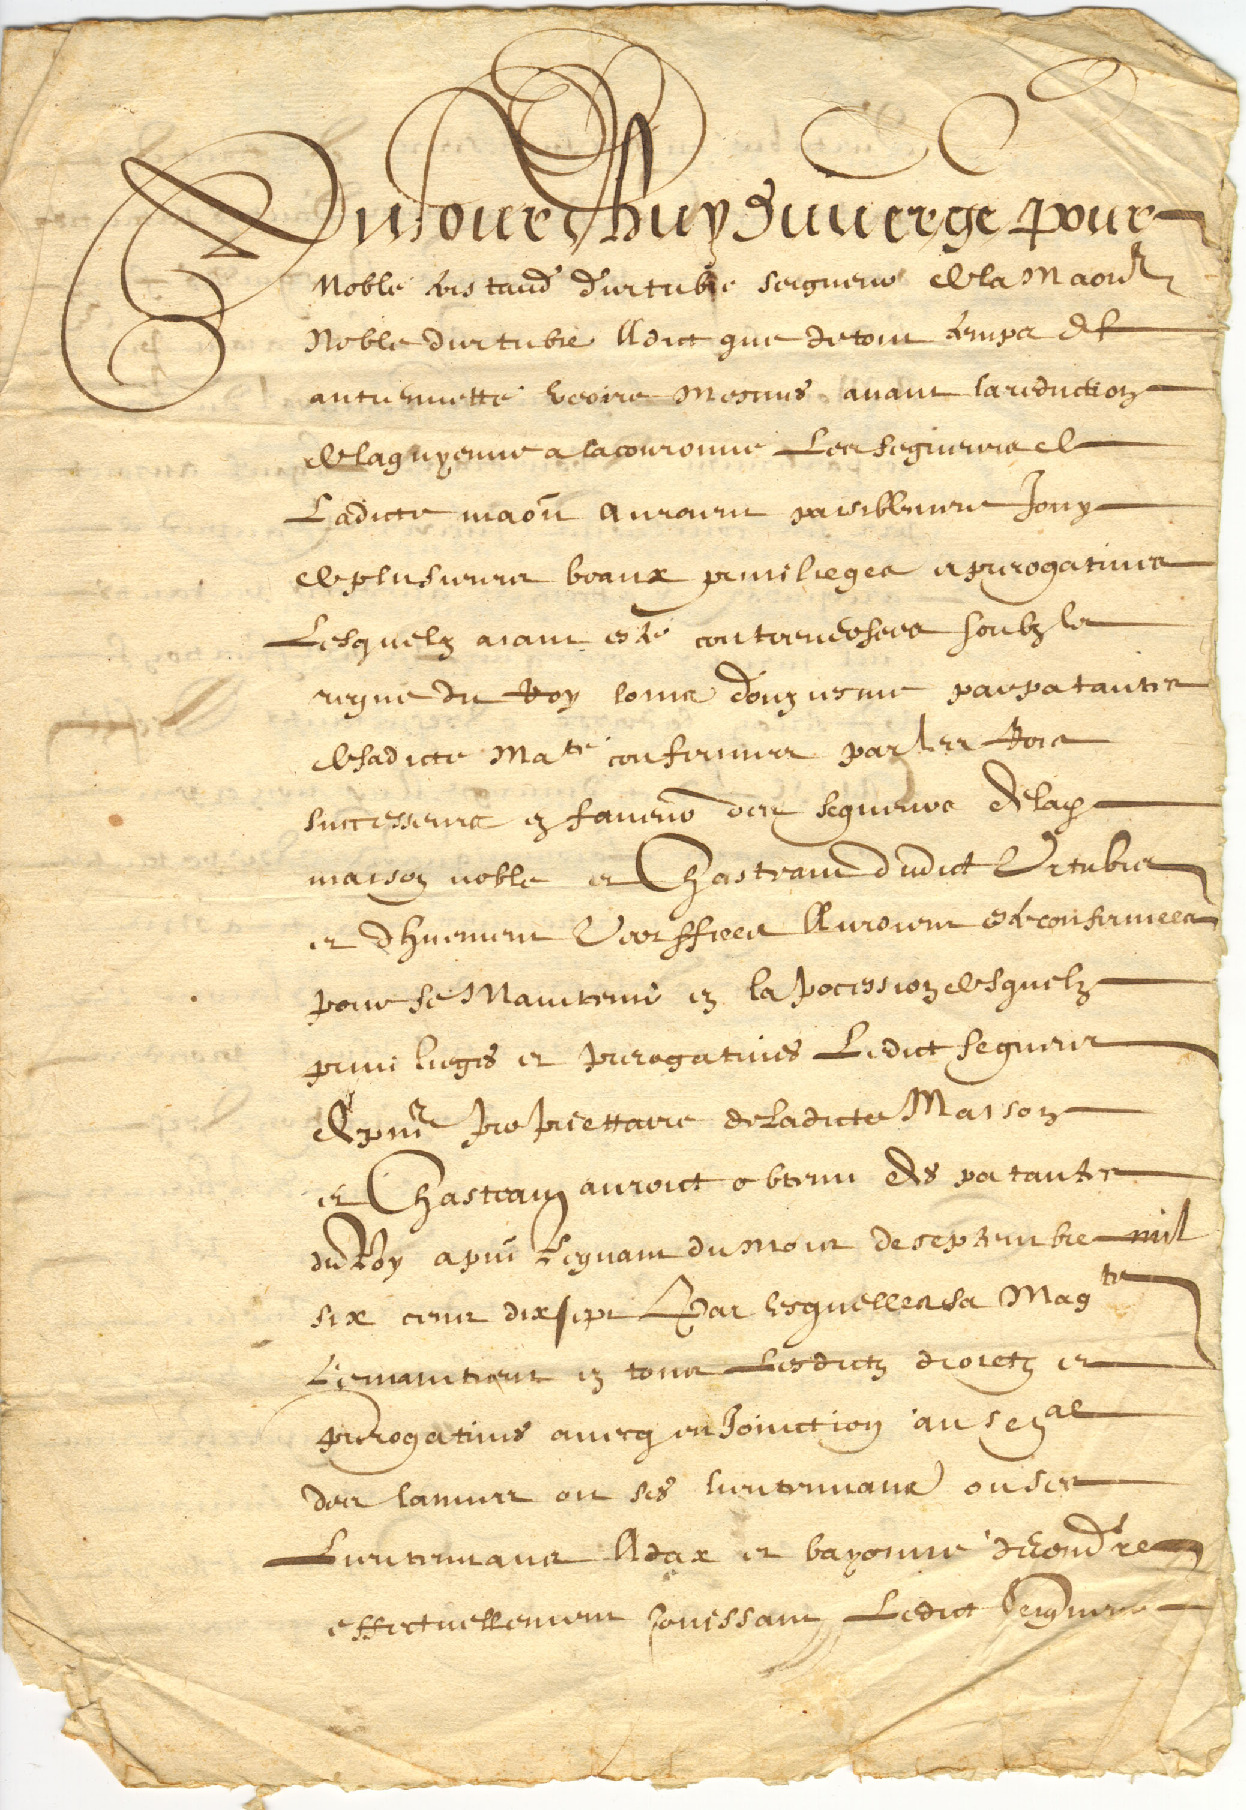 Aujourdhuy Duuerge pour
Noble tristand durtubie seigneur de la maon
Noble durtubie A dict que de tout temps et
antiennette veoire mesmes auant la reduction
de la guyenne a la couronne Les seigneurs de
Ladicte maon Auroient paisiblement Jouy
de plusieurs beaux priuilieges et prerogatiues
Lesquelz aiant esté controuersees soubz le
regne du Roy louis donziesme par patantes
de sadicte Mate confirmees par les Rois
successeurs en faueur des seigneurs de lad
maison noble et Chasteau dudict Urtubie
et dhuement veriffiees Auroient esté confirmees
pour se Maintenir en la pocession desquelz
priuilieges et prerogatiues Ledict segneur
de pnt propriettaire de Ladicte Maison
et Chasteau auroict obtenu des patantes
du Roy a pnt Regnant du mois de septembre mil
six cent dix sept Par lesquelles sa Magte
Le maintient en tous Lesdictz droictz et
prerogatiues auecq enJoinction au senal
des lannes ou ses lieutenans ou ses
Lieutenans A dax et bayonne de rendre
effectuellement jouissant Ledict seigneur